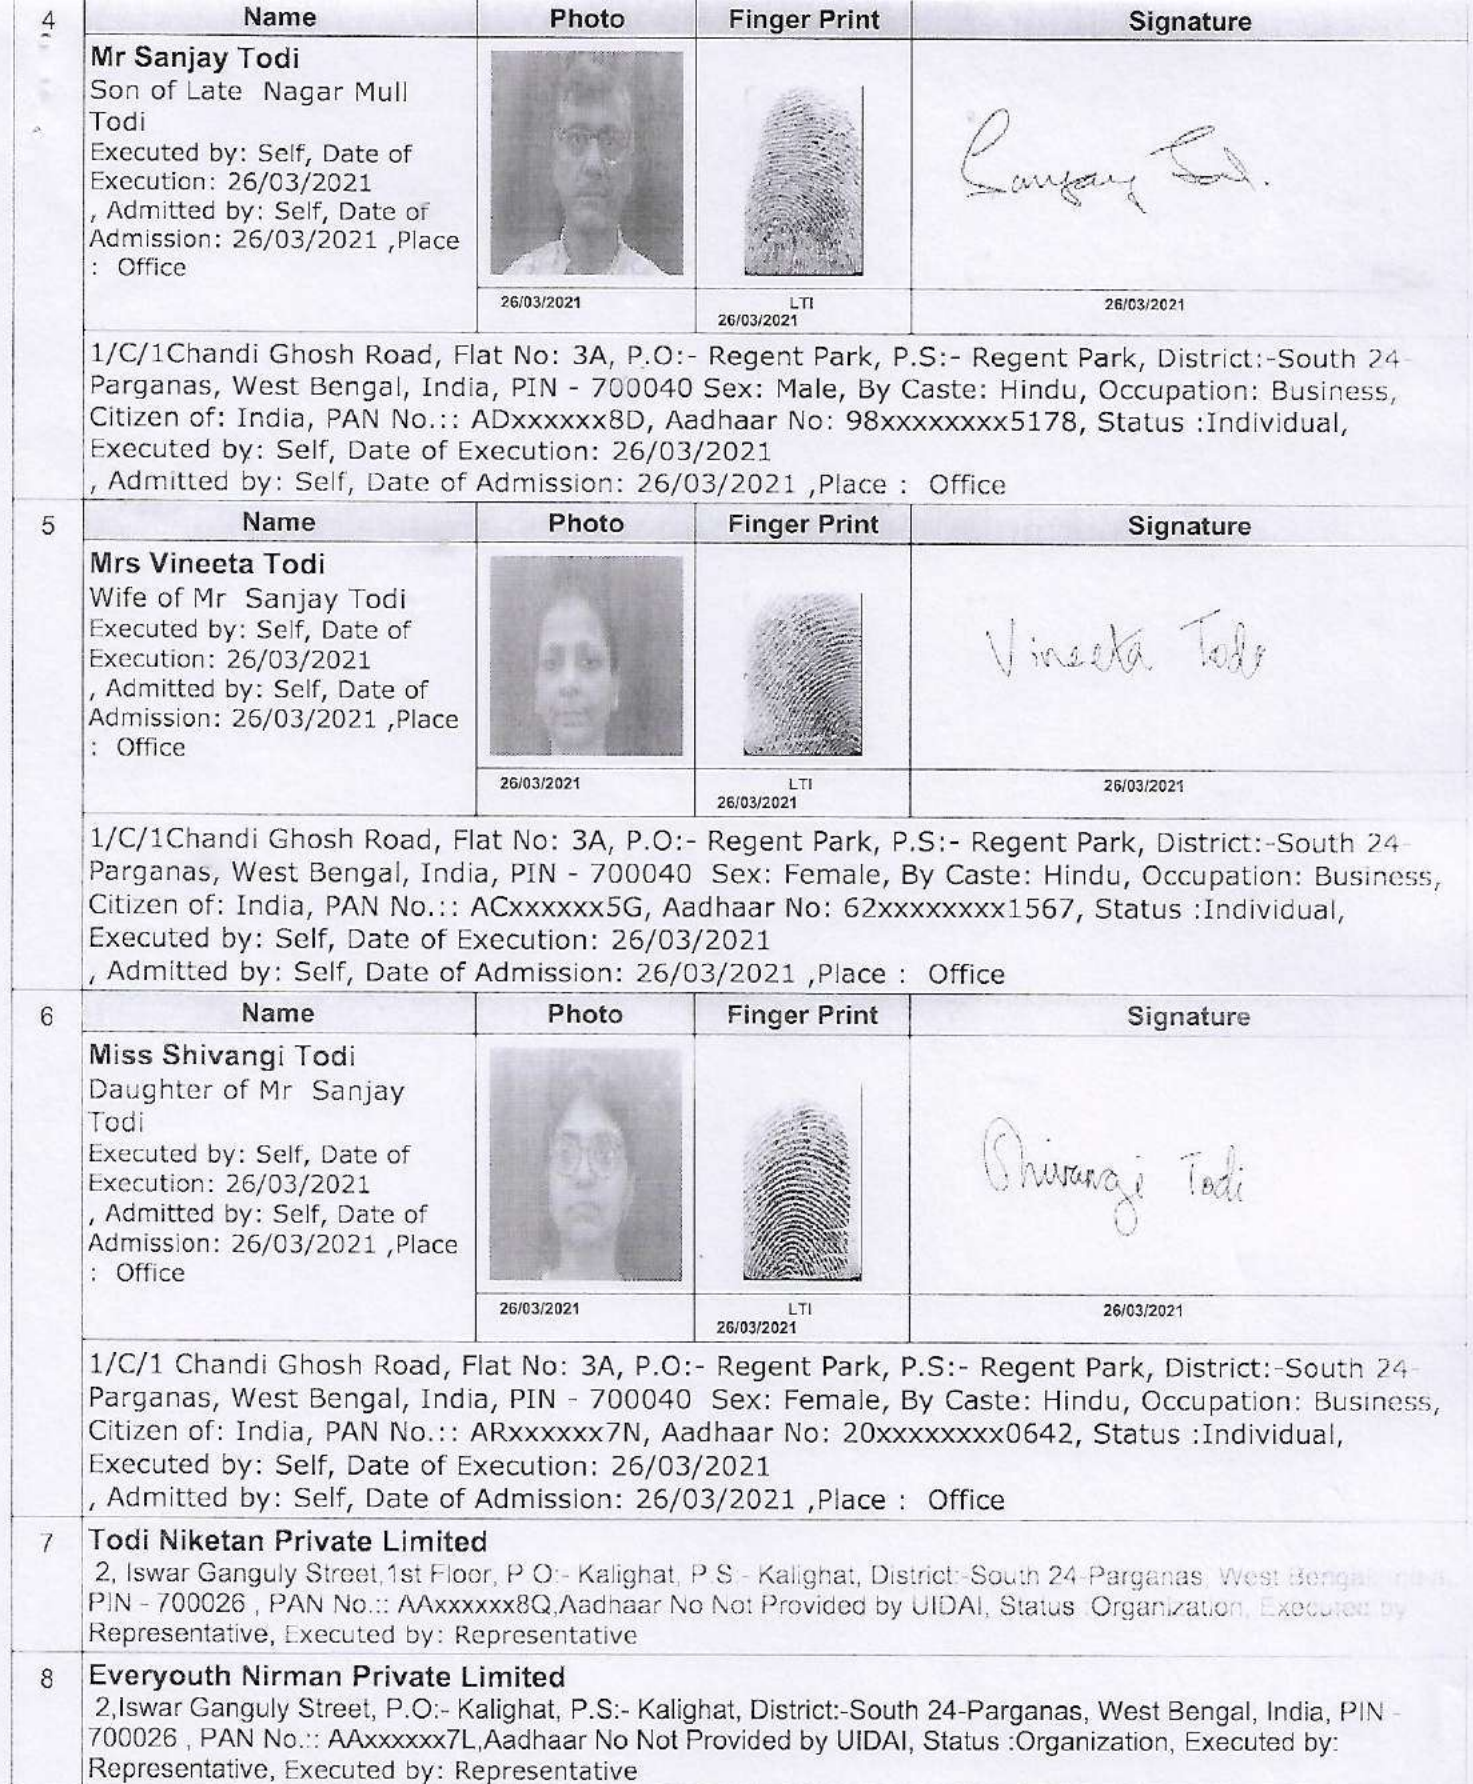 4 Name Photo Finger Print Signature
Mr Sanjay Todi
Son of Late Nagar Mull
Todi
Executed by: Self, Date of
Execution: 26/03/2021
, Admitted by: Self, Date of
Admission: 26/03/2021 ,Place
: Office
Sanjay Todi.
26/03/2021 LTI 26/03/2021
26/03/2021
1/C/1Chandi Ghosh Road, Flat No: 3A, P.O:- Regent Park, P.S:- Regent Park, District:-South 24-
Parganas, West Bengal, India, PIN - 700040 Sex: Male, By Caste: Hindu, Occupation: Business,
Citizen of: India, PAN No.:: ADxxxxxx8D, Aadhaar No: 98xxxxxxxx5178, Status :Individual,
Executed by: Self, Date of Execution: 26/03/2021
, Admitted by: Self, Date of Admission: 26/03/2021 ,Place : Office
5 Name Photo Finger Print Signature
Mrs Vineeta Todi
Wife of Mr Sanjay Todi
Executed by: Self, Date of
Execution: 26/03/2021
, Admitted by: Self, Date of
Admission: 26/03/2021 ,Place
: Office
Vineeta Todi
26/03/2021 LTI 26/03/2021
26/03/2021
1/C/1Chandi Ghosh Road, Flat No: 3A, P.O:- Regent Park, P.S:- Regent Park, District:-South 24-
Parganas, West Bengal, India, PIN - 700040 Sex: Female, By Caste: Hindu, Occupation: Business,
Citizen of: India, PAN No.:: ACxxxxxx5G, Aadhaar No: 62xxxxxxxx1567, Status :Individual,
Executed by: Self, Date of Execution: 26/03/2021
, Admitted by: Self, Date of Admission: 26/03/2021 ,Place : Office
6 Name Photo Finger Print Signature
Miss Shivangi Todi
Daughter of Mr Sanjay
Todi
Executed by: Self, Date of
Execution: 26/03/2021
, Admitted by: Self, Date of
Admission: 26/03/2021 ,Place
: Office
Shivangi Todi
26/03/2021 LTI 26/03/2021
26/03/2021
1/C/1 Chandi Ghosh Road, Flat No: 3A, P.O:- Regent Park, P.S:- Regent Park, District:-South 24-
Parganas, West Bengal, India, PIN - 700040 Sex: Female, By Caste: Hindu, Occupation: Business,
Citizen of: India, PAN No.:: ARxxxxxx7N, Aadhaar No: 20xxxxxxxx0642, Status :Individual,
Executed by: Self, Date of Execution: 26/03/2021
, Admitted by: Self, Date of Admission: 26/03/2021 ,Place : Office
7 Todi Niketan Private Limited
2, Iswar Ganguly Street,1st Floor, P.O:- Kalighat, P.S:- Kalighat, District:-South 24-Parganas, West Bengal, India,
PIN - 700026 , PAN No.:: AAxxxxxx8Q,Aadhaar No Not Provided by UIDAI, Status :Organization, Executed by
Representative, Executed by: Representative
8 Everyouth Nirman Private Limited
2,Iswar Ganguly Street, P.O:- Kalighat, P.S:- Kalighat, District:-South 24-Parganas, West Bengal, India, PIN -
700026 , PAN No.:: AAxxxxxx7L,Aadhaar No Not Provided by UIDAI, Status :Organization, Executed by:
Representative, Executed by: Representative